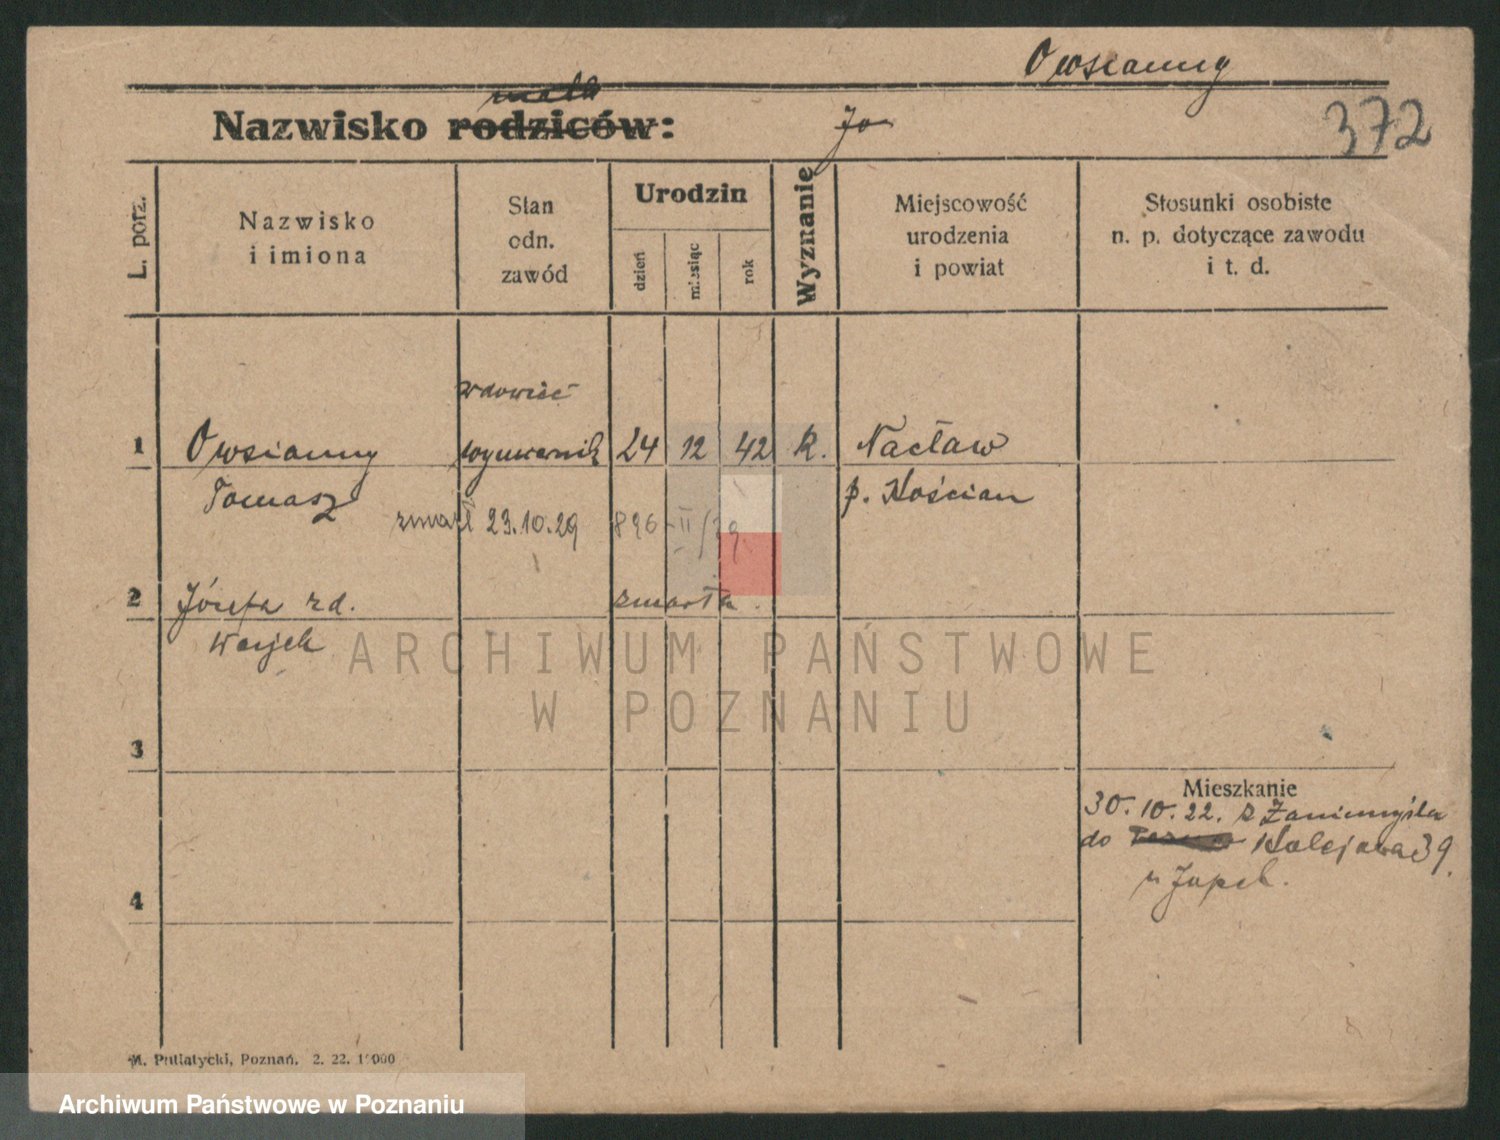 Owsianny
372
męża
Nazwisko rodziców:
L. porz.
Nazwisko
i imiona
Stan
odn.
zawód
Urodzin
dzień
miesiąc
rok
Wyznanie
Miejscowość
urodzenia
i powiat
Stosunki osobiste
n. p. dotyczące zawodu
i t. d.
wdowiec
1 Owsianny wymiernik 24 12 42 k. Nacław
Tomasz p. Kościan
zmarł 23.10.29 896 II/29.
2 Józefa zd. zmarła.
ARCHIWUM PAŃSTWOWE
W POZNANIU
3
Mieszkanie
30.10.22. z Zaniemyśla
do Kolejowa 39.
4
M. Putiatycki, Poznań. 2. 22. 1000
Archiwum Państwowe w Poznaniu